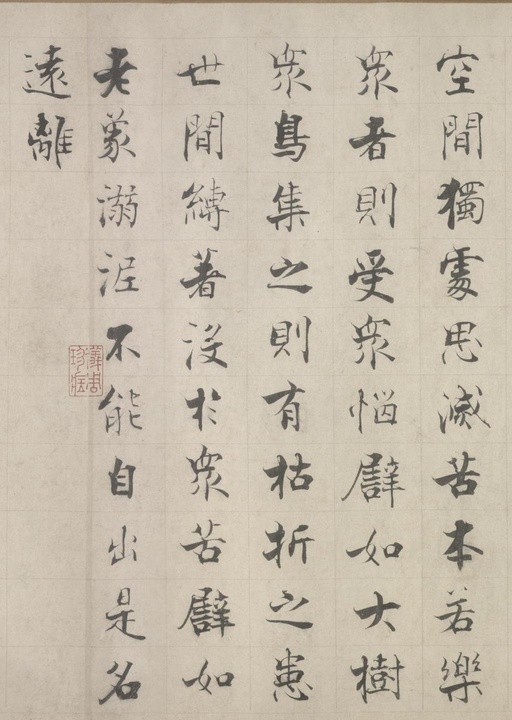 空閒獨處思滅苦本若樂
眾者則受眾惱譬如大樹
眾鳥集之則有枯折之患
世間縛著沒於眾苦譬如
老象溺泥不能自出是名
遠離